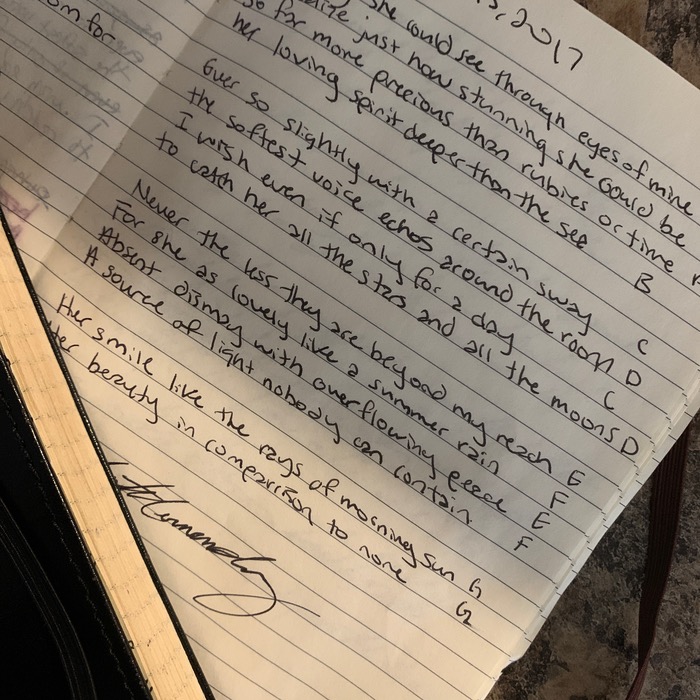 for
2017
she could see through eyes of mine
just how stunning she could be
so far more precious than rubies or time
her loving spirit deeper than the see B
Ever so slightly with a certain sway C
the softest voice echos around the room D
I wish even if only for a day C
to catch her all the stars and all the moons D
Never the less they are beyond my reach E
For she as lovely like a summer rain F
Absent dismay with overflowing peace E
A source of light nobody can contain. F
Her smile like the rays of morning sun G
Her beauty in comparison to none G